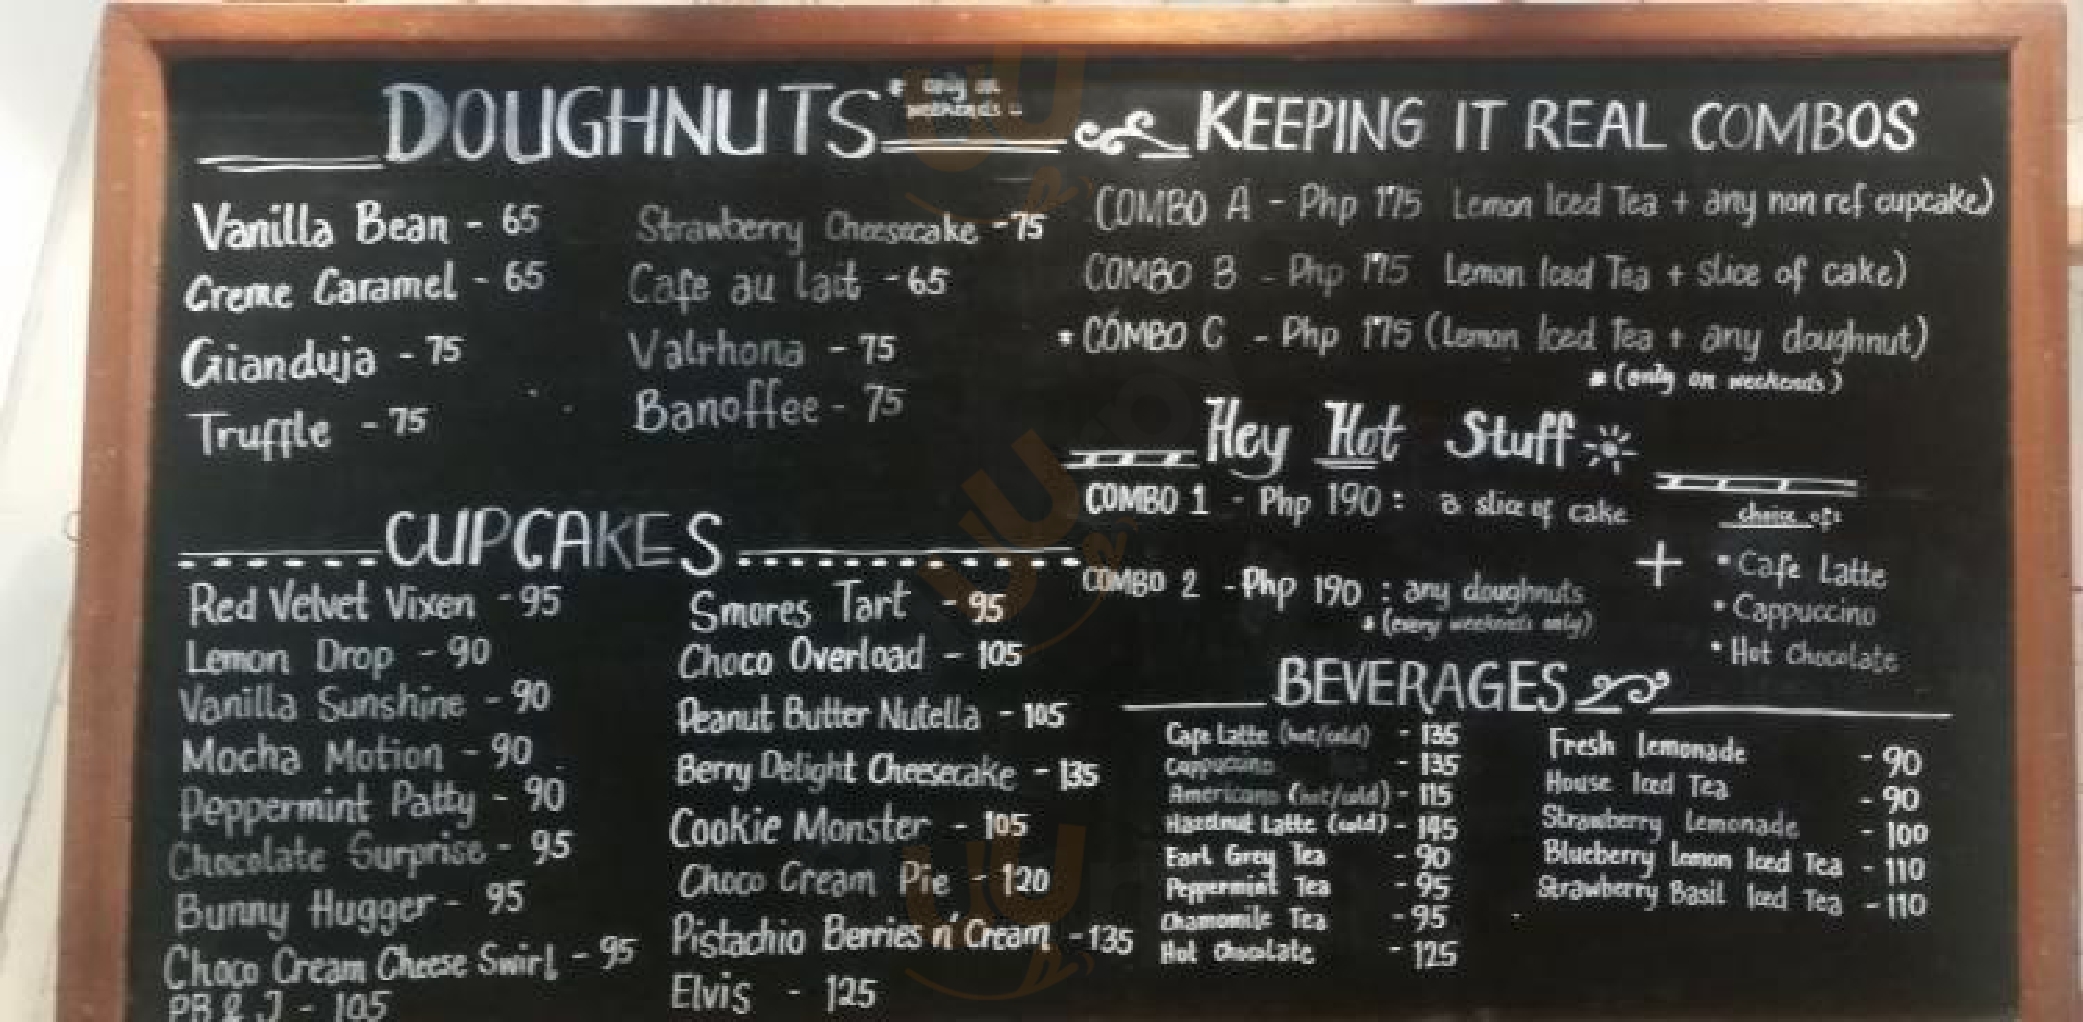 DOUGHNUTS * only on
weekends
Vanilla Bean - 65
Creme Caramel - 65
Gianduja - 75
Truffle - 75
Strawberry Cheesecake - 75
Cafe au lait - 65
Valrhona - 75
Banoffee - 75
CUPCAKES
Red Velvet Vixen - 95
Lemon Drop - 90
Vanilla Sunshine - 90
Mocha Motion - 90
Peppermint Patty - 90
Chocolate Surprise - 95
Bunny Hugger - 95
Choco Cream Cheese Swirl - 95
PB & J - 105
Smores Tart - 95
Choco Overload - 105
Peanut Butter Nutella - 105
Berry Delight Cheesecake - 135
Cookie Monster - 105
Choco Cream Pie - 120
Pistachio Berries n' Cream - 135
Elvis - 125
KEEPING IT REAL COMBOS
COMBO A - Php 175 Lemon Iced Tea + any non ref cupcake)
COMBO B - Php 175 Lemon Iced Tea + slice of cake)
* COMBO C - Php 175 (Lemon Iced Tea + any doughnut)
* (only on weekends)
Hey Hot Stuff
COMBO 1 - Php 190 : a slice of cake
COMBO 2 - Php 190 : any doughnuts
* (every weekends only)
+
choice of:
• Cafe Latte
• Cappuccino
• Hot Chocolate
BEVERAGES
Cafe Latte (hot/cold) - 135
Cappuccino - 135
Americano (hot/cold) - 115
Hazelnut Latte (cold) - 145
Earl Grey Tea - 90
Peppermint Tea - 95
Chamomile Tea - 95
Hot Chocolate - 125
Fresh Lemonade - 90
House Iced Tea - 90
Strawberry Lemonade - 100
Blueberry Lemon Iced Tea - 110
Strawberry Basil Iced Tea - 110